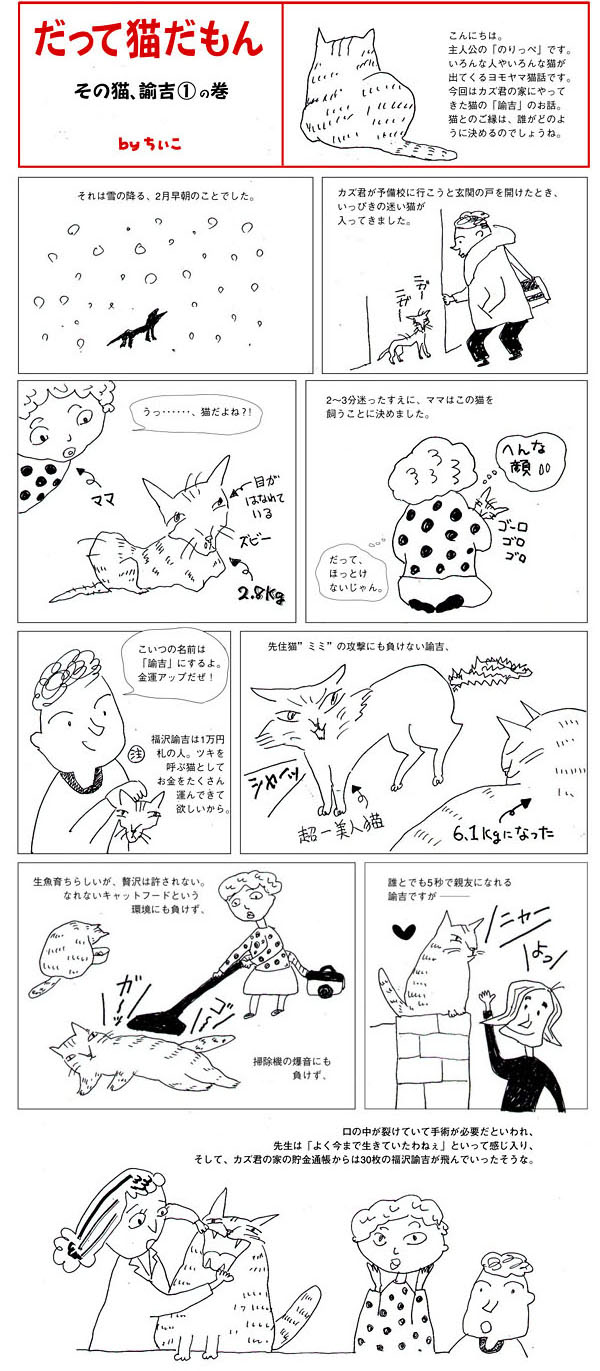 だって猫だもん
その猫、諭吉①の巻
byちいこ
こんにちは。
主人公の「のりっぺ」です。
いろんな人やいろんな猫が
出てくるヨモヤマ猫話です。
今回はカズ君の家にやって
きた猫の「諭吉」のお話。
猫とのご縁は、誰がどのよ
うに決めるのでしょうね。
それは雪の降る、2月早朝のことでした。
カズ君が予備校に行こうと玄関の戸を開けたとき、
いっぴきの迷い猫が
入ってきました。
ニガー
ニガー
うっ‥‥‥、猫だよね?!
ママ
目が
はなれて
いる
ズビー
2.8kg
2〜3分迷ったすえに、ママはこの猫を
飼うことに決めました。
へんな
顔!!
ゴーロ
ゴロ
ゴロ
だって、
ほっとけ
ないじゃん。
こいつの名前は
「諭吉」にするよ。
金運アップだぜ!
注
福沢諭吉は1万円
札の人。ツキを
呼ぶ猫として
お金をたくさん
運んできて
欲しいから。
先住猫"ミミ"の攻撃にも負けない諭吉、
シャーッ
超一美人猫
6.1kgになった
生魚育ちらしいが、贅沢は許されない。
なれないキャットフードという
環境にも負けず、
ガーッ
ゴーッ
掃除機の爆音にも
負けず、
誰とでも5秒で親友になれる
諭吉ですが───
ニャー
よっ
口の中が裂けていて手術が必要だといわれ、
先生は「よく今まで生きていたわねぇ」といって感じ入り、
そして、カズ君の家の貯金通帳からは30枚の福沢諭吉が飛んでいったそうな。